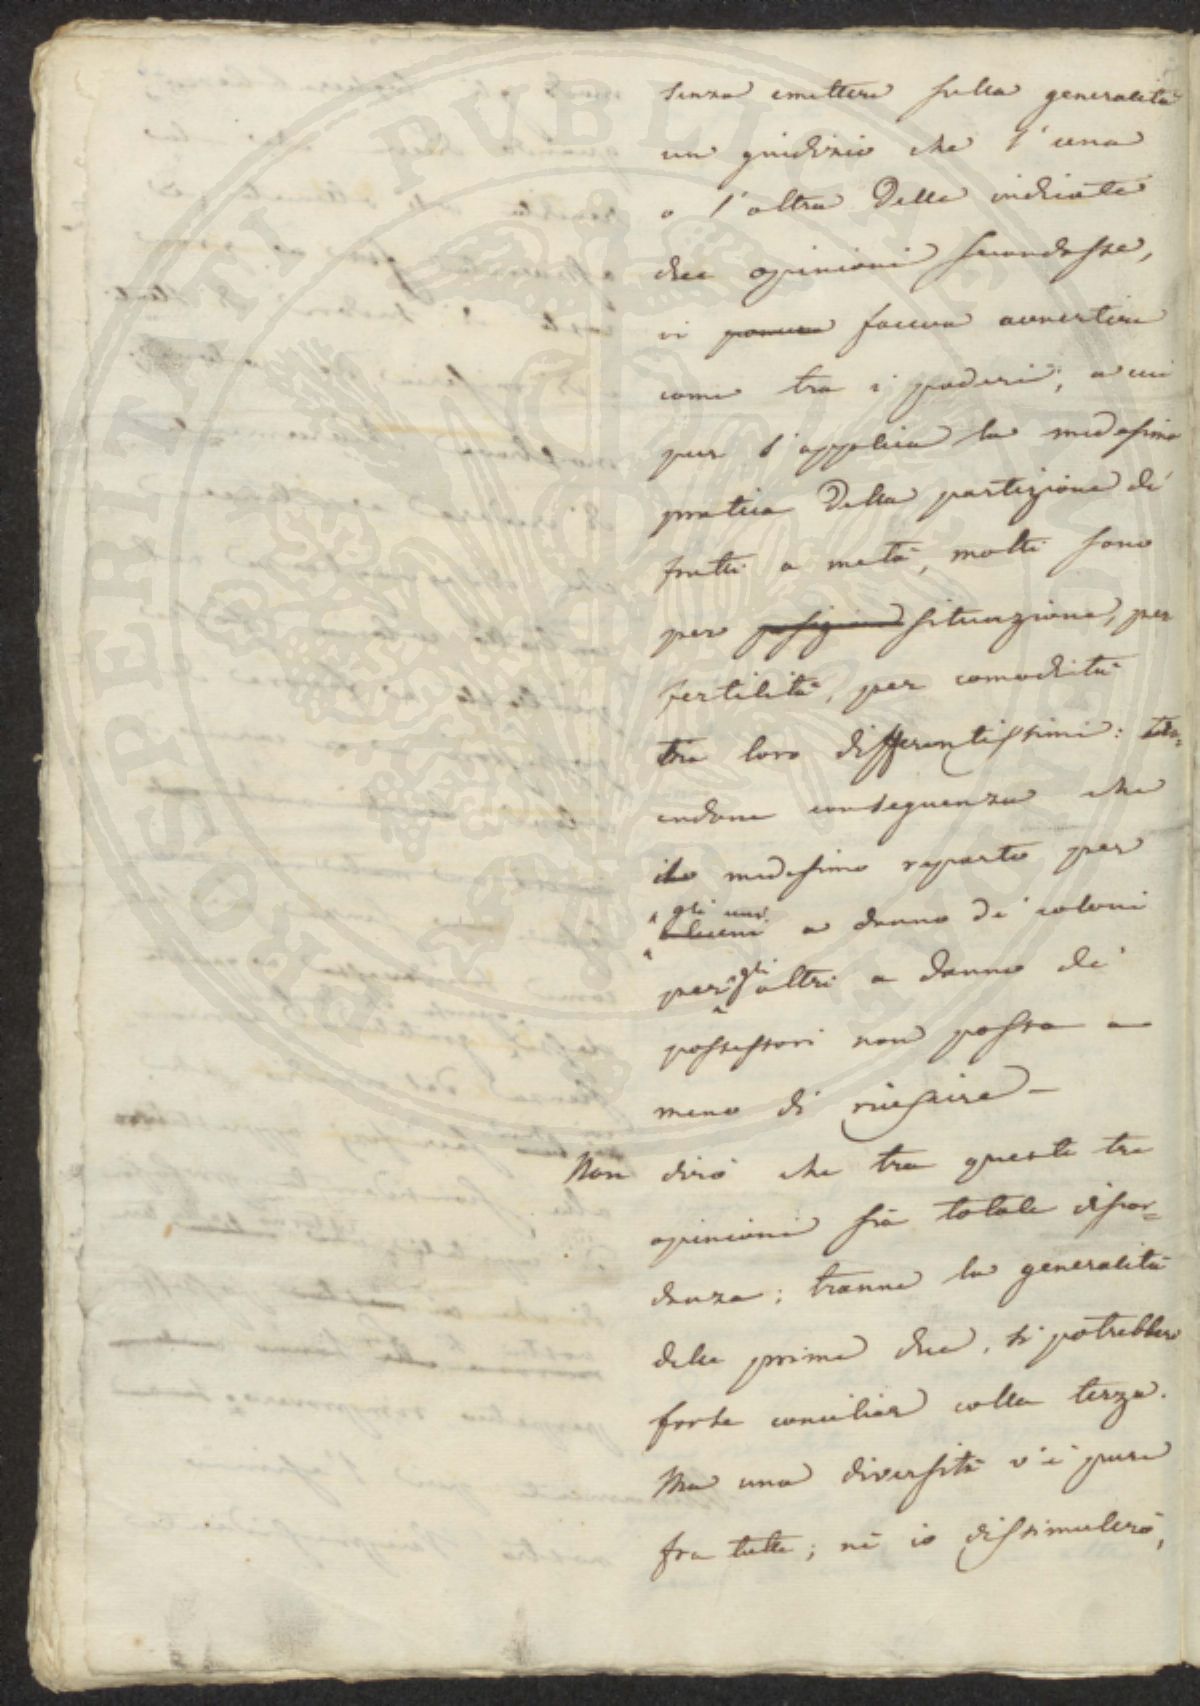 senza emettere sulla generalità
un giudizio che l'una
o l'altra delle indicate
due opinioni secondasse,
vi faceva avvertire
come tra i poderi, a cui
pur s'applica la medesima
pratica della partizione de'
frutti a metà, molti sono
per situazione, per
fertilità, per comodità
tra loro differentissimi:
endone conseguenza che
lo medesimo reparto per
gli uni a danno de' coloni
per gli altri a danno de'
possessori non possa a
meno di riuscire —
Non dirò che tra queste tre
opinioni sia totale discor=
danza; tranne la generalità
delle prime due, si potrebbero
forse conciliar colla terza.
Ma una diversità v'è pure
fra tutte; nè io dissimulerò,